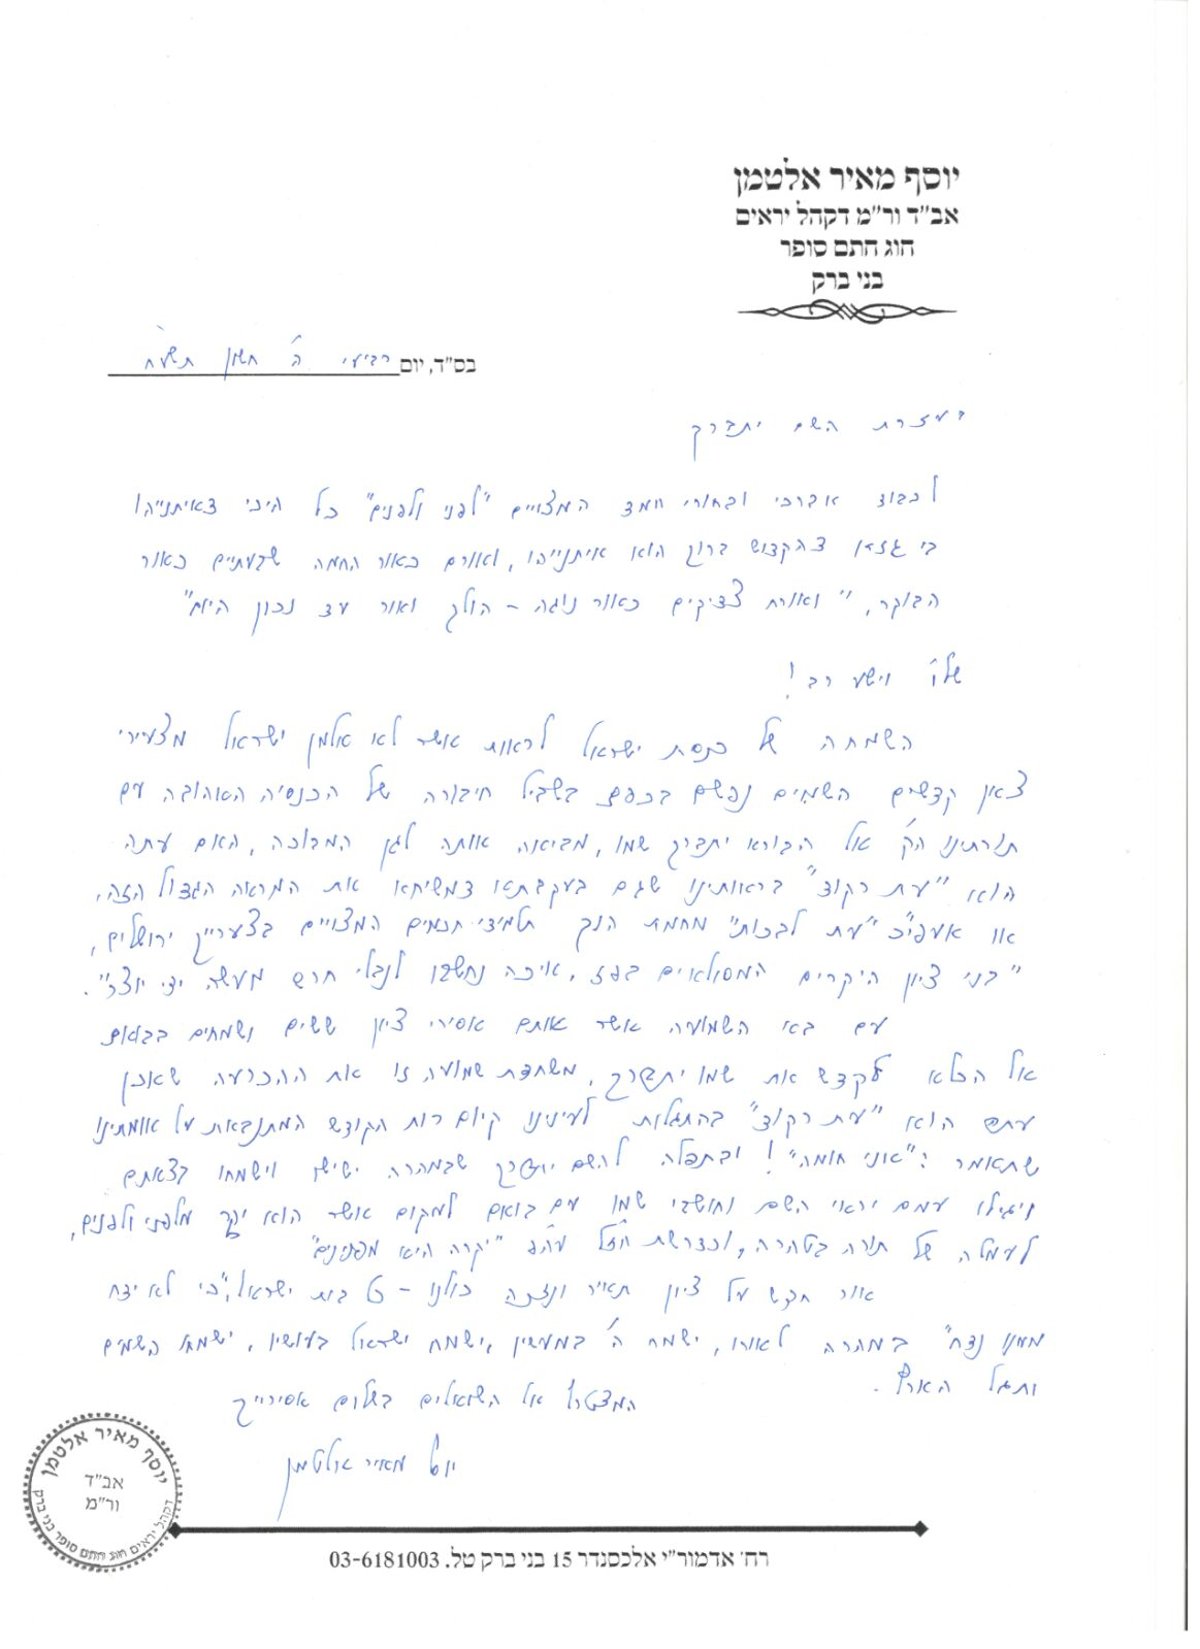 יוסף מאיר אלטמן
אב"ד ור"מ דקהל יראים
חוג חתם סופר
בני ברק
בס"ד, יום רביעי ה' חשון תשע"ח
בעזרת השם יתברך
לכבוד אברכי ובחורי חמד המצויים "לפני ולפנים" כל היכי דאיתנייהו
בי גזזא דהקדוש ברוך הוא איתנייהו, ואורם כאור החמה שבעתיים כאור
הבוקר, "ואורח צדיקים כאור נוגה - הולך ואור עד נכון היום"
שלו' וישע רב!
השמחה של כנסת ישראל לראות אשר לא אלמן ישראל מצעירי
צאן קדשים השמים נפשם בכפם בשביל חיבורה של הכנסיה האהובה עם
תורתינו הק' אל הבורא יתברך שמו, מביאה אותה לגן המבוכה, האם עתה
הוא "עת רקוד" בראותינו שגם בעקבתא דמשיחא את המראה הגדול הזה,
או אעפ"כ "עת לבכות" מחמת הנך תלמידי חכמים המצויים בצערייך ירושלים,
"בני ציון היקרים המסולאים בפז, איכה נחשבו לנבלי חרש מעשה ידי יוצר".
עם בא השמועה אשר אותם אסירי ציון ששים ושמחים בבואם
אל הכלא לקדש את שמו יתברך, משחדת שמועה זו את ההכרעה שאכן
עתה הוא "עת רקוד" בהתגלות לעינינו קיום רוח הקודש המתנבאת על אומתינו
שתאמר: "אני חומה"! ובתפלה להשם יתברך שבמהרה ישישו וישמחו בצאתם
ויגילו עמם יראי השם וחושבי שמו עם בואם למקום אשר הוא יקר מלפני ולפנים,
לעמלה של תורה בטהרה, וכדרשת חז"ל עה"פ "יקרה היא מפנינים"
אור חדש על ציון תאיר ונזכה כולנו - כל בית ישראל, "כי לא ידח
ממנו נדח" במהרה לאורו, ישמח ה' במעשיו, ישמח ישראל בעושיו, ישמחו השמים
ותגל הארץ.
המצטרף אל השואלים בשלום אסירייך
יוסף מאיר אלטמן
יוסף מאיר אלטמן
אב"ד
ור"מ
דקהל יראים חוג חתם סופר בני ברק
רח' אדמור"י אלכסנדר 15 בני ברק טל. 03-6181003